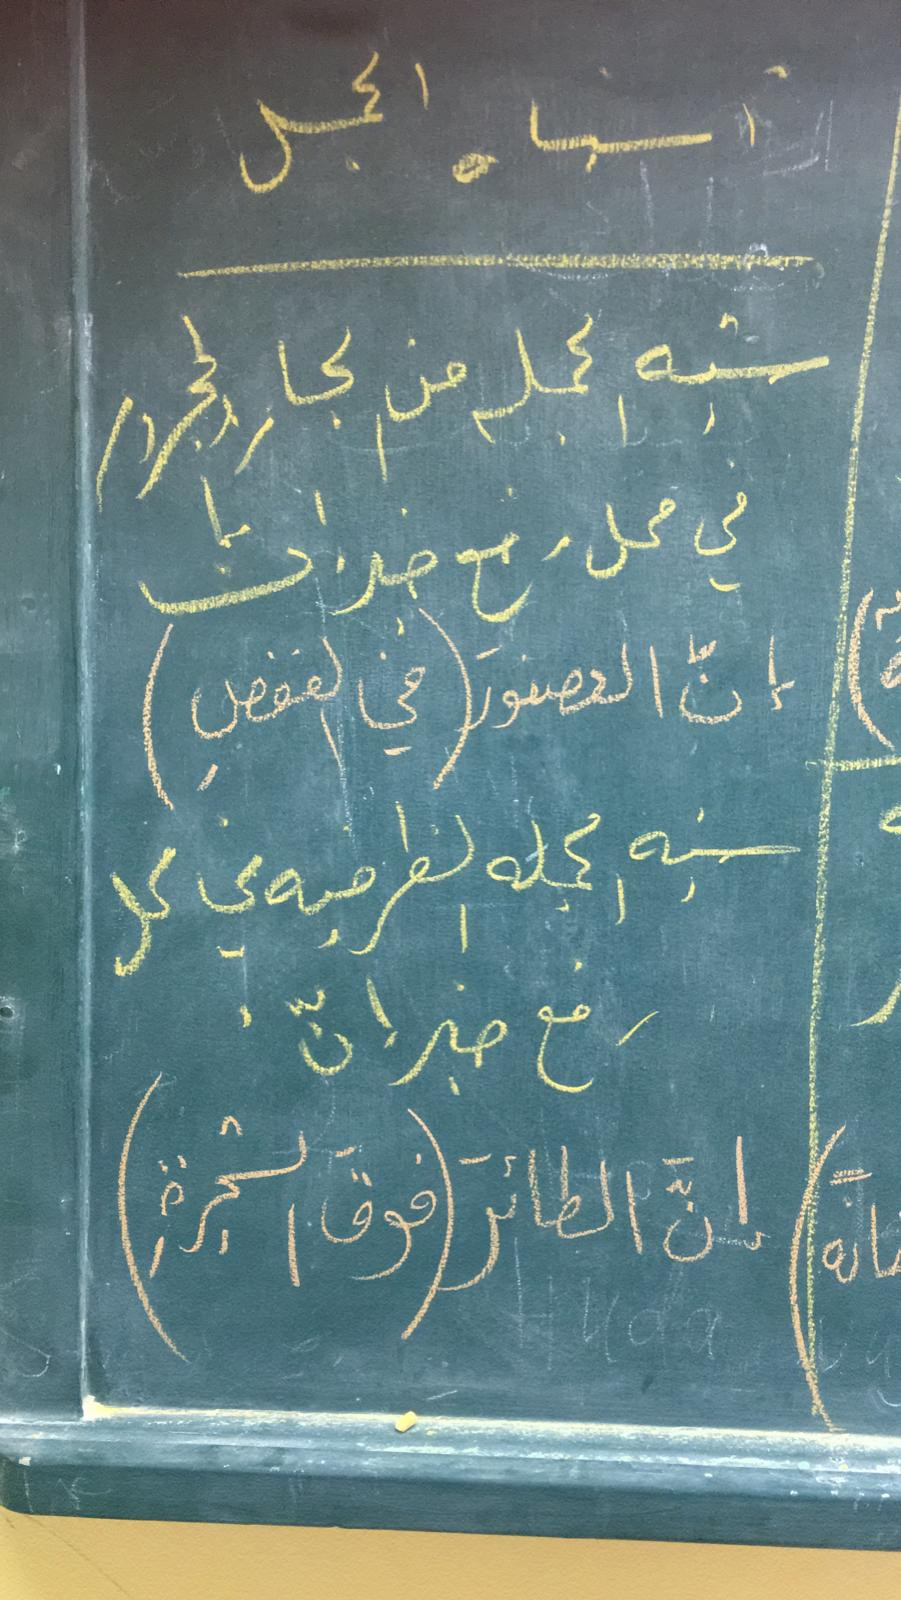 أشباه الجمل
شبه الجمل من الجار والمجرور
في محل رفع خبر إنّ
إنّ العصفورَ (في القفصِ)
شبه الجمله الظرفيه في محل
رفع خبر إنّ
إنّ الطائرَ (فوقَ الشجرةِ)